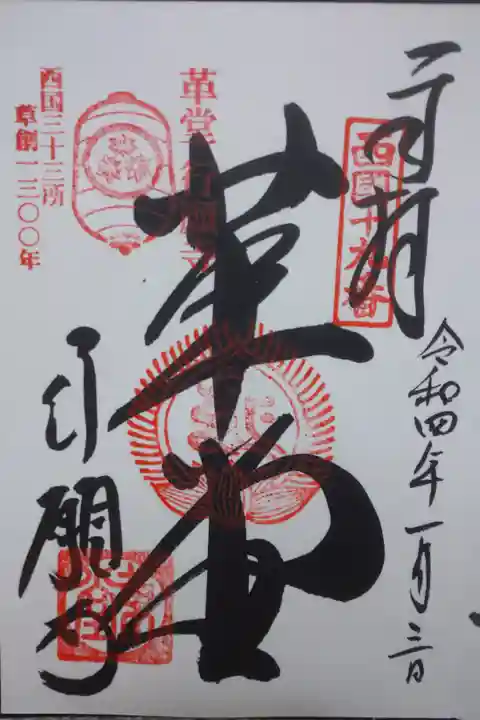 西國十九番
令和四年一月三日
革堂
革堂行願寺
西国三十三所
草創一三〇〇年
行願寺